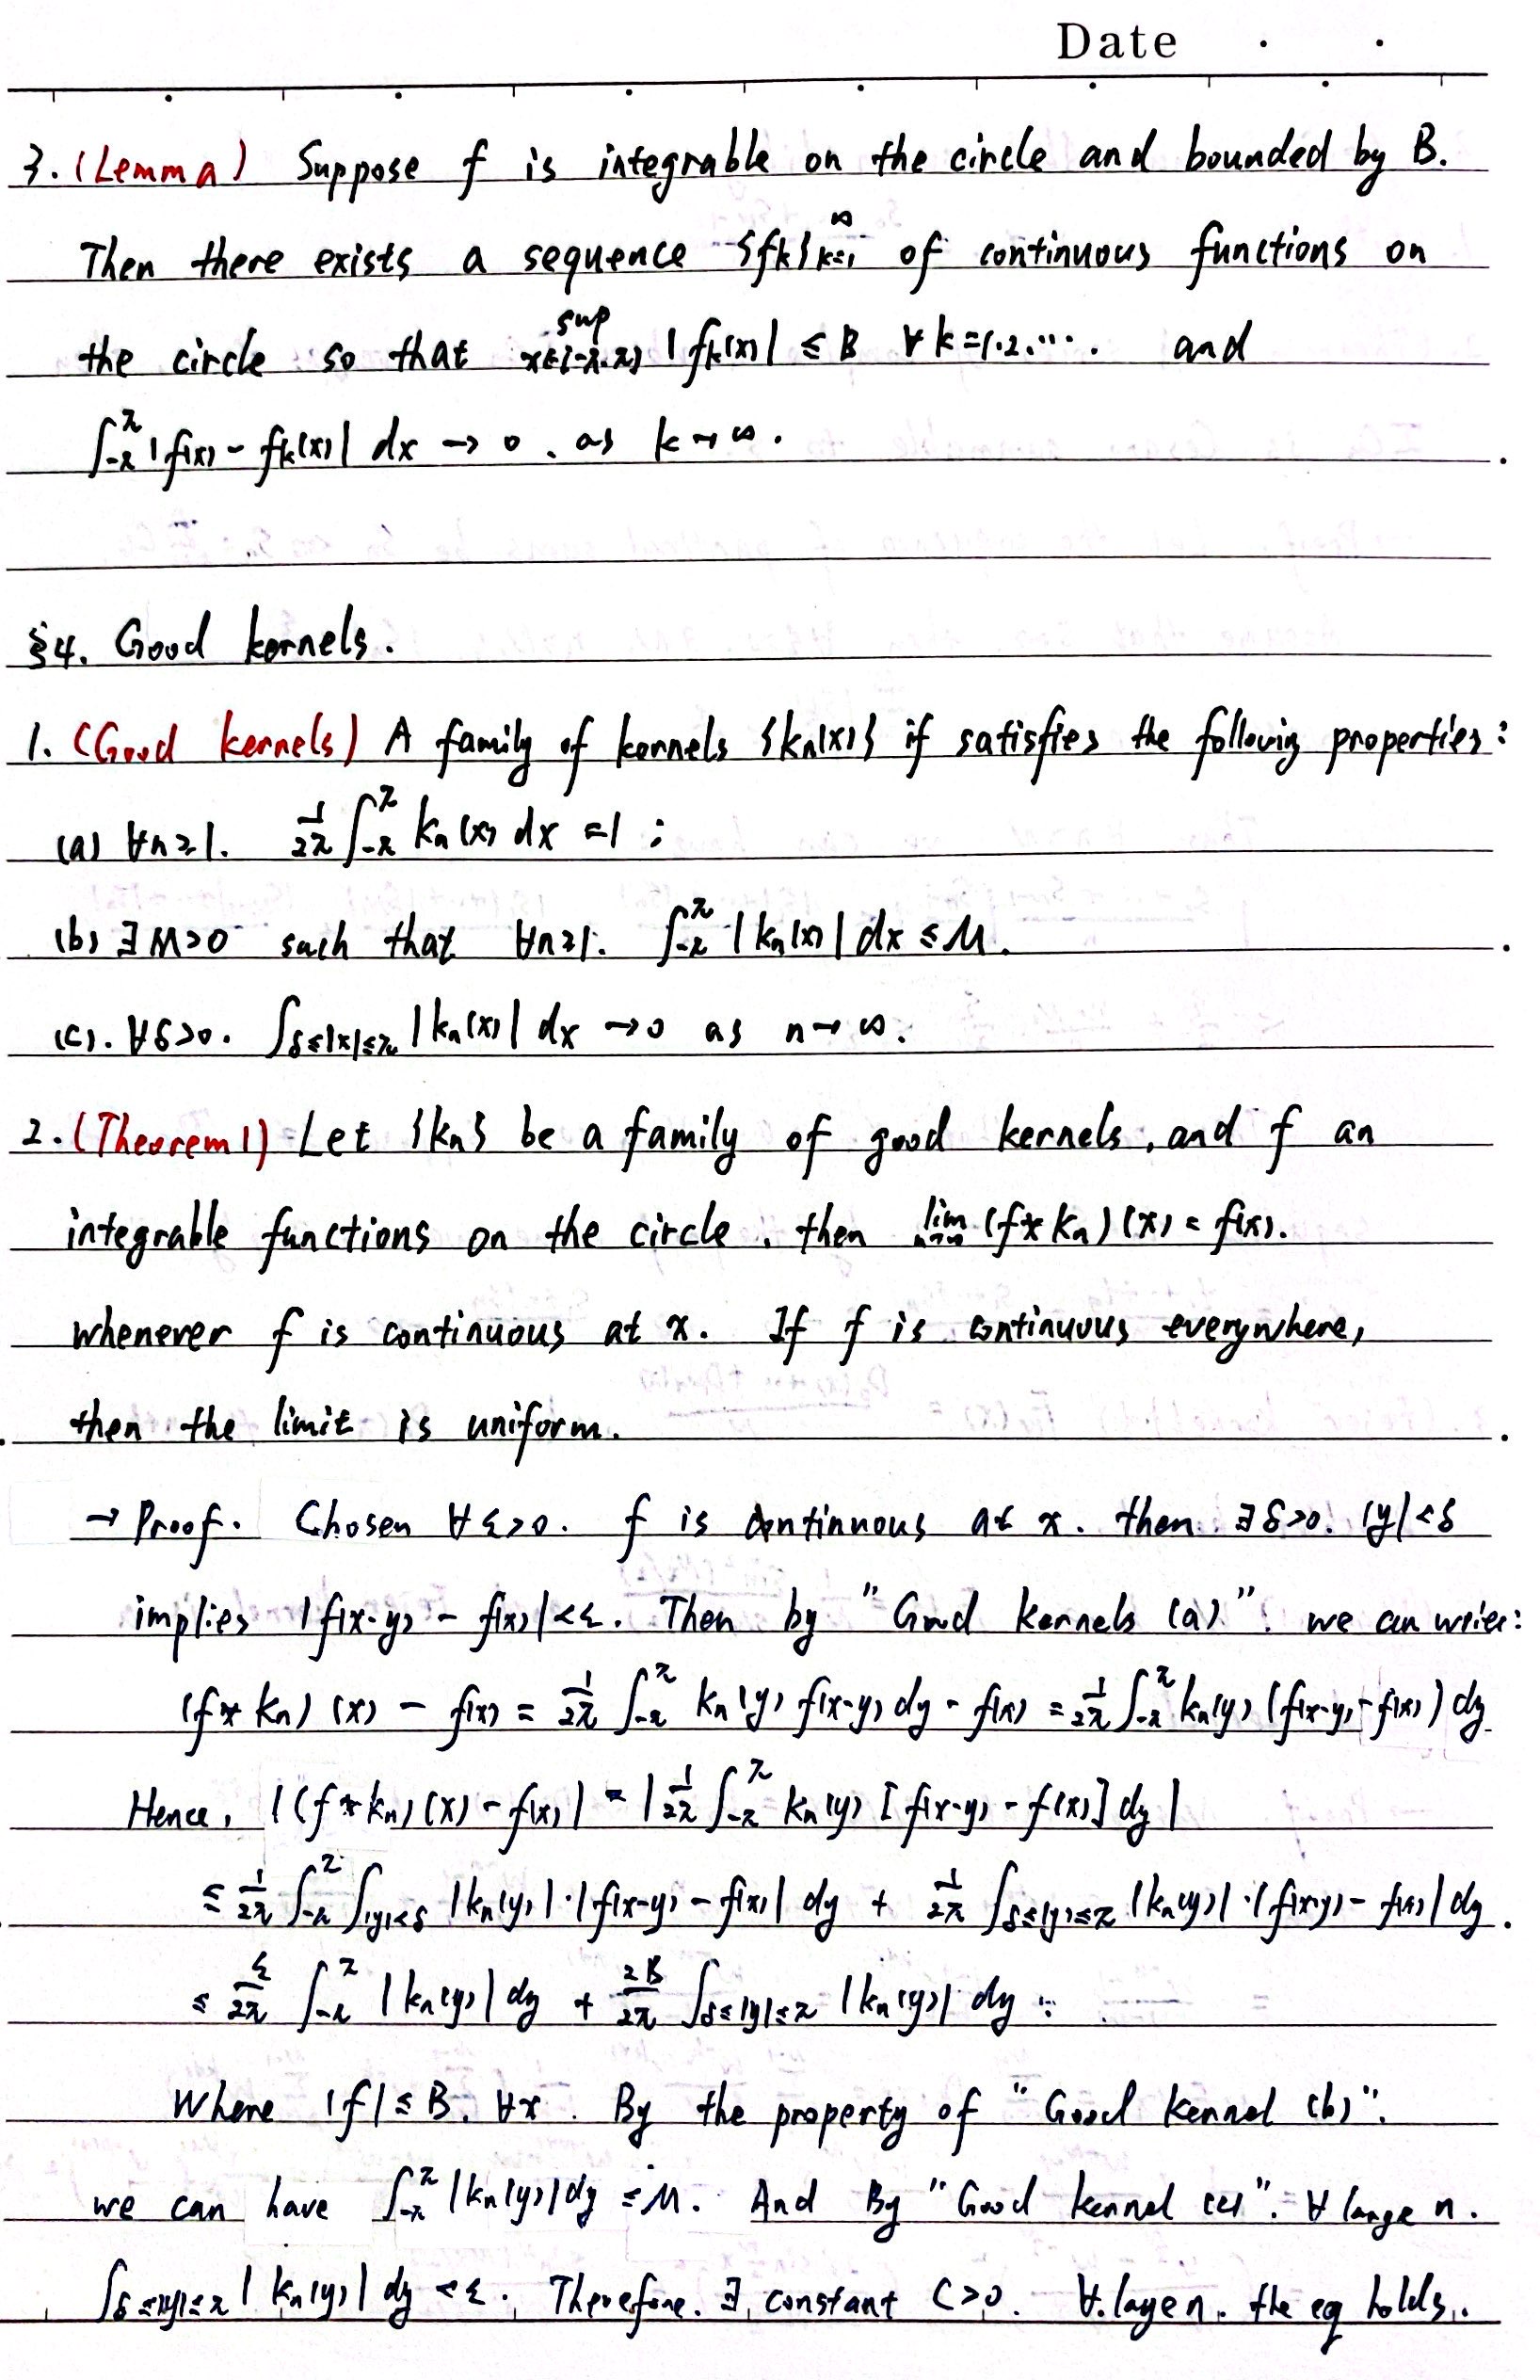 Date . .
3. (Lemma) Suppose f is integrable on the circle and bounded by B.
Then there exists a sequence {fk}_{k=1}^∞ of continuous functions on
the circle so that sup_{x∈[-π,π]} |fk(x)| ≤ B ∀k=1.2.…. and
∫_{-π}^{π} |f(x) - fk(x)| dx → 0. as k→∞.
§4. Good kernels.
1. (Good kernels) A family of kernels {kn(x)} if satisfies the following properties:
(a) ∀n≥1. 1/2π ∫_{-π}^{π} kn(x) dx =1;
(b) ∃M>0 such that ∀n≥1. ∫_{-π}^{π} |kn(x)| dx ≤ M.
(c). ∀δ>0. ∫_{δ≤|x|≤π} |kn(x)| dx →0 as n→∞.
2. (Theorem1) Let {kn} be a family of good kernels, and f an
integrable functions on the circle. then lim_{n→∞} (f*kn)(x) = f(x).
whenever f is continuous at x. If f is continuous everywhere,
then the limit is uniform.
→ Proof. Chosen ∀ε>0. f is continuous at x. then ∃δ>0. |y|<δ
implies |f(x-y) - f(x)|<ε. Then by "Good kernels (a)". we can wrier:
(f*kn)(x) - f(x) = 1/2π ∫_{-π}^{π} kn(y) f(x-y) dy - f(x) = 1/2π ∫_{-π}^{π} kn(y) (f(x-y) - f(x)) dy
Hence, |(f*kn)(x) - f(x)| = |1/2π ∫_{-π}^{π} kn(y) [f(x-y) - f(x)] dy|
≤ 1/2π ∫_{-π}^{π} ∫_{|y|<δ} |kn(y)|·|f(x-y) - f(x)| dy + 1/2π ∫_{δ≤|y|≤π} |kn(y)|·|f(x-y) - f(x)| dy.
≤ ε/2π ∫_{-π}^{π} |kn(y)| dy + 2B/2π ∫_{δ≤|y|≤π} |kn(y)| dy.
Where |f|≤B. ∀x. By the property of "Good kennel (b)".
we can have ∫_{-π}^{π} |kn(y)| dy ≤ M. And By "Good kennel (c)". ∀ large n.
∫_{δ≤|y|≤π} |kn(y)| dy <ε. Therefore. ∃ constant C>0. ∀.layen. the eq holds.